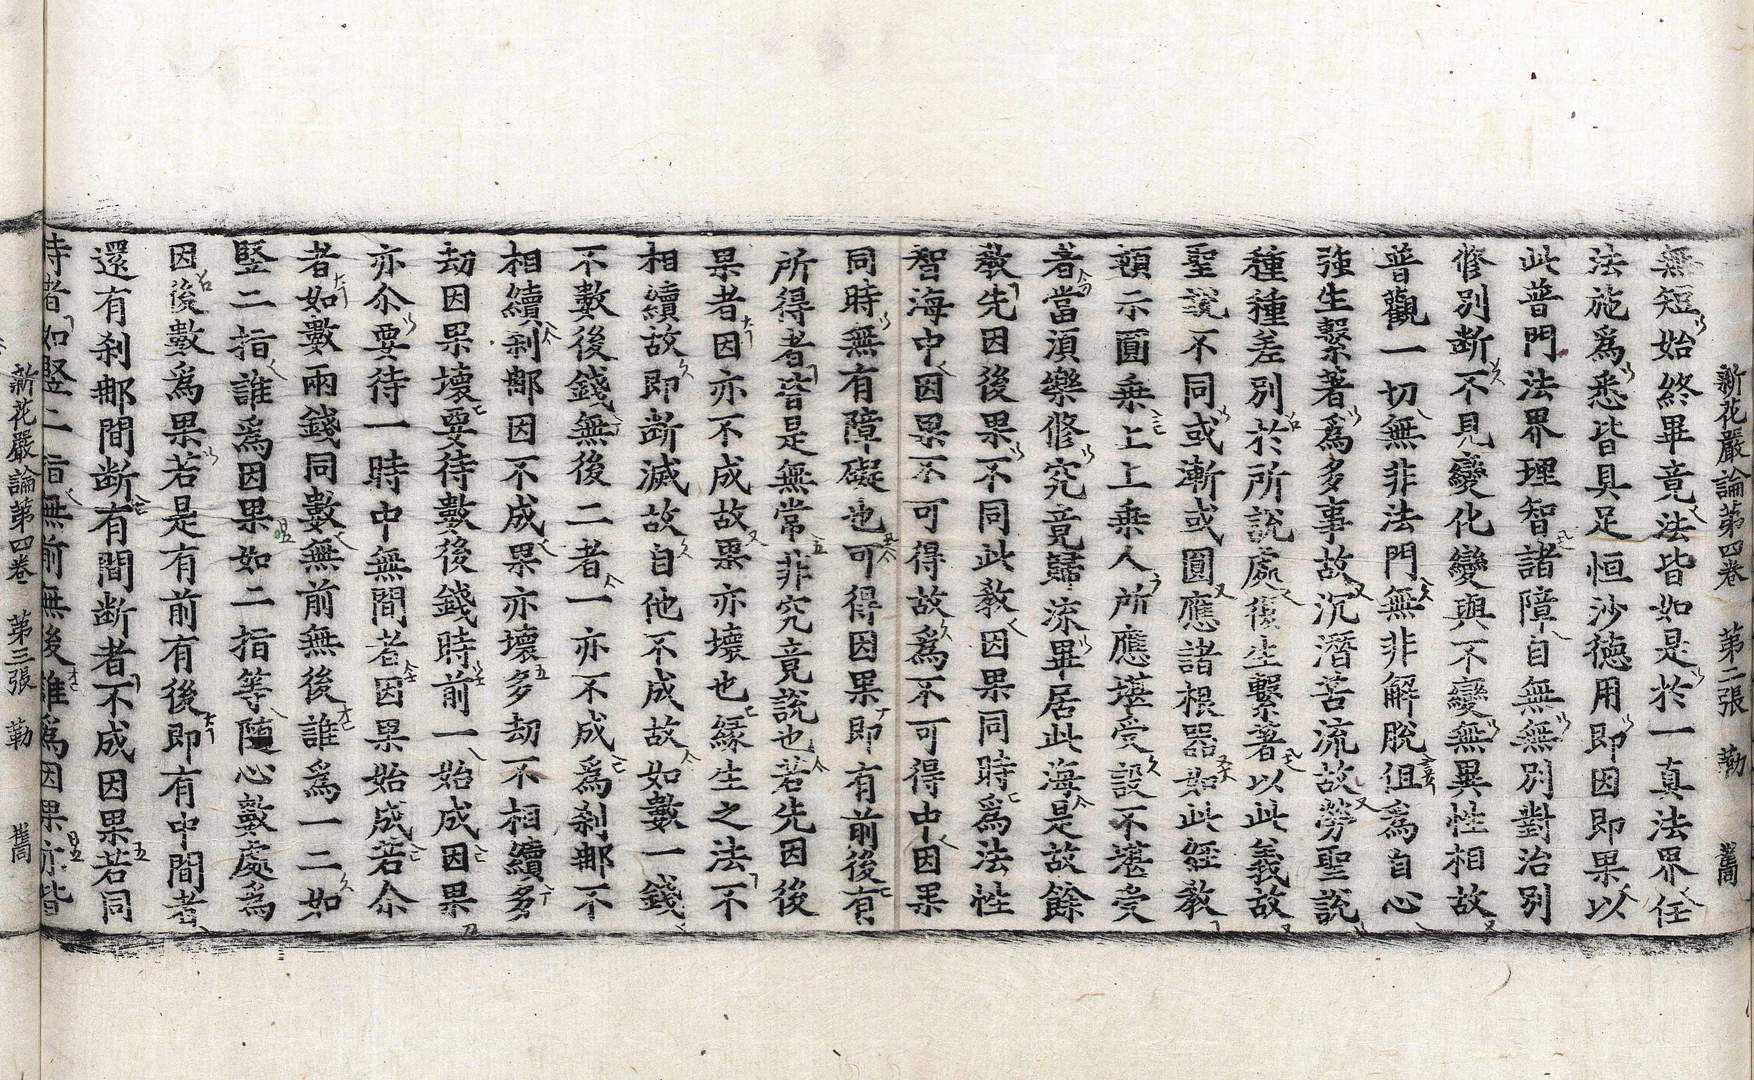 新花嚴論第四卷 第二張 勒
無短始終畢竟法皆如是於一真法界任
法施爲悉皆具足恒沙德用即因即果以
此普門法界理智諸障自無無別對治別
修別断不見變化變與不變無異性相故
普觀一切無非法門無非解脫但爲自心
強生繫著爲多事故沉潛苦流故勞聖說
種種差別於所說處復生繫著以此義故
聖說不同或漸或圓應諸根器如此経教
頓示圓乗上上乗人所應堪受設不堪受
者當須樂修究竟歸流畢居此海是故餘
教先因後果不同此教因果同時爲法性
智海中因果不可得故爲不可得中因果
同時無有障礙也可得因果即有前後有
所得者皆是無常非究竟說也若先因後
果者因亦不成故果亦壞也緣生之法不
相續故即断滅故自他不成故如數一錢
不數後錢無後二者一亦不成爲刹那不
相續刹那因不成果亦壞多劫不相續多
劫因果壞要待數後錢時前一始成因果
亦尒要待一時中無間者因果始成若尒
者如數兩錢同數無前無後誰爲一二如
竪二指誰爲因果如二指等随心數處爲
因後數爲果若是有前有後即有中間者
還有刹那間断有間断者不成因果若同
時者如竪二指無前無後誰爲因果亦皆
新花嚴論第四卷 第三張 勒